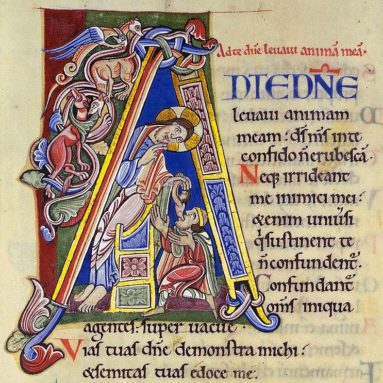 Ad te dñe levavi animā meā.
AD TE DÑE
levavi animam
meam: ds ms in te
confido ñ erubescā.
Neqȝ irrideant
me inimici mei:
&enim univsi
q̇ sustinent te
ñ confundent᷑.
Confundant᷑
om̄s iniqua
agentes: super vacue.
Vias tuas dñe demonstra michi:
&semitas tuas edoce me.